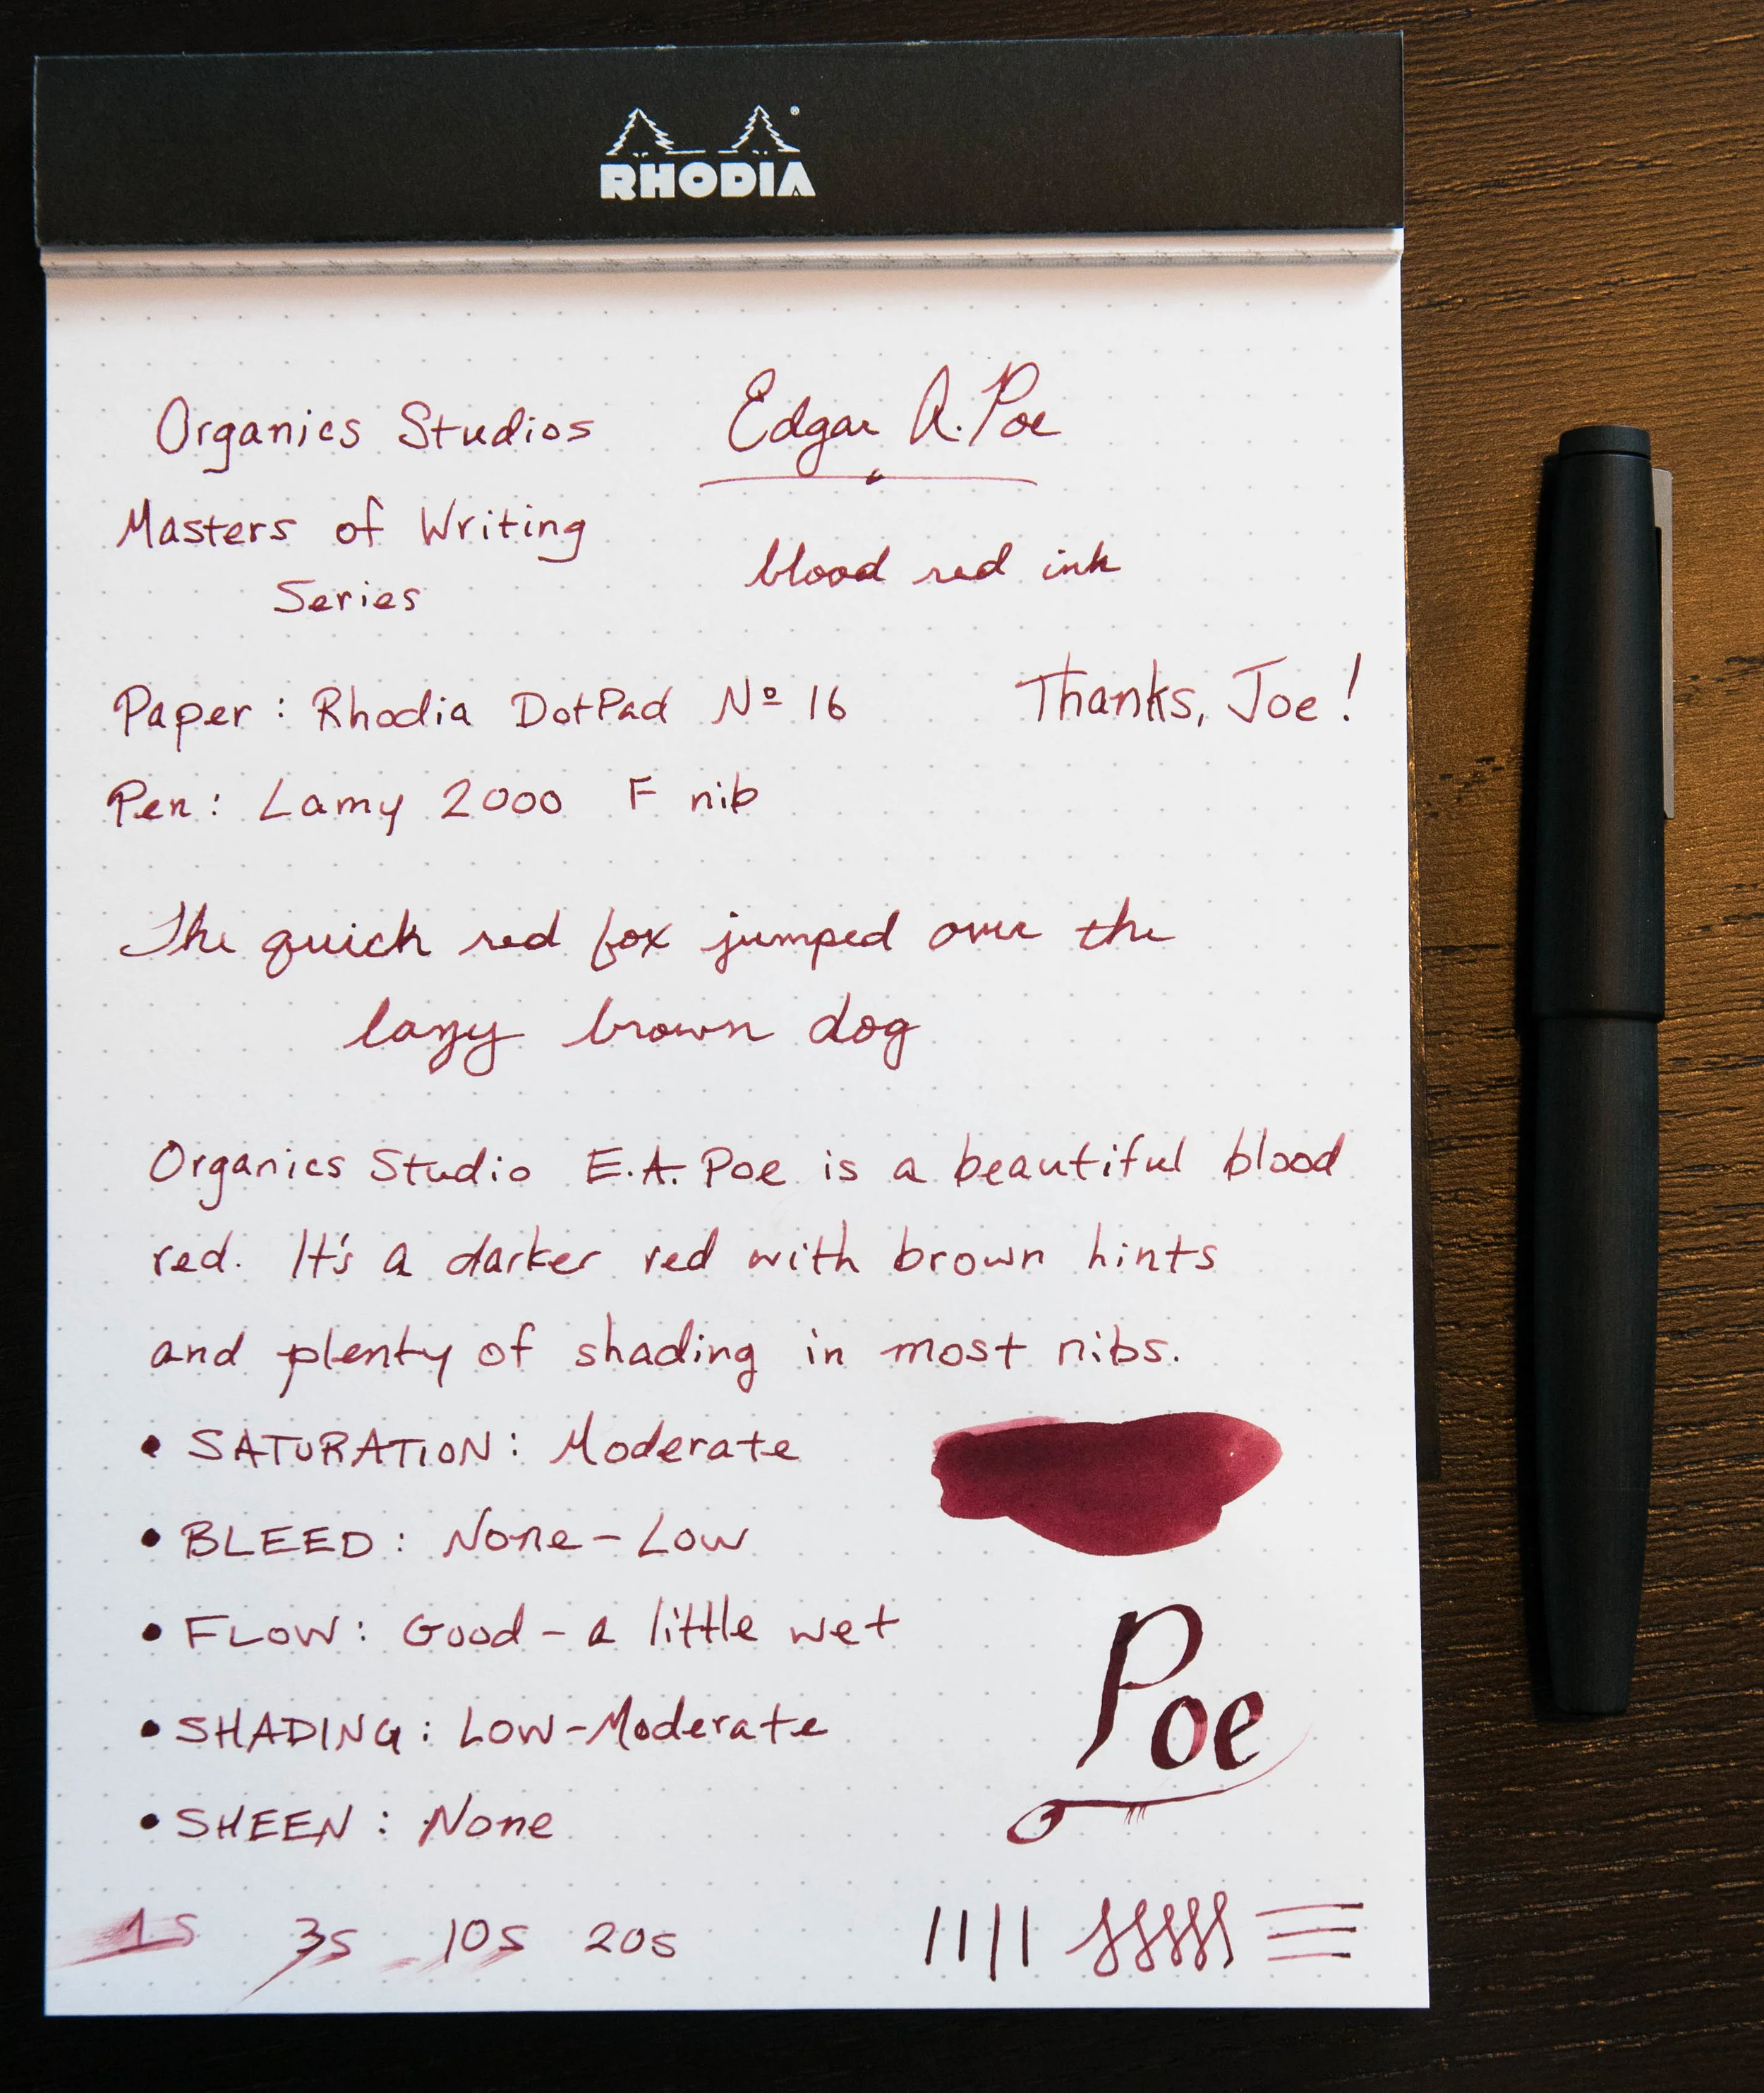 RHODIA
Organics Studios
Masters of Writing
Series
Edgar A. Poe
blood red ink
Paper: Rhodia DotPad Nº 16
Thanks, Joe!
Pen: Lamy 2000 F nib
The quick red fox jumped over the
lazy brown dog
Organics Studio E.A. Poe is a beautiful blood
red. It's a darker red with brown hints
and plenty of shading in most nibs.
• SATURATION: Moderate
• BLEED: None - Low
• FLOW: Good - a little wet
• SHADING: Low-Moderate
• SHEEN: None
Poe
1s 3s 10s 20s